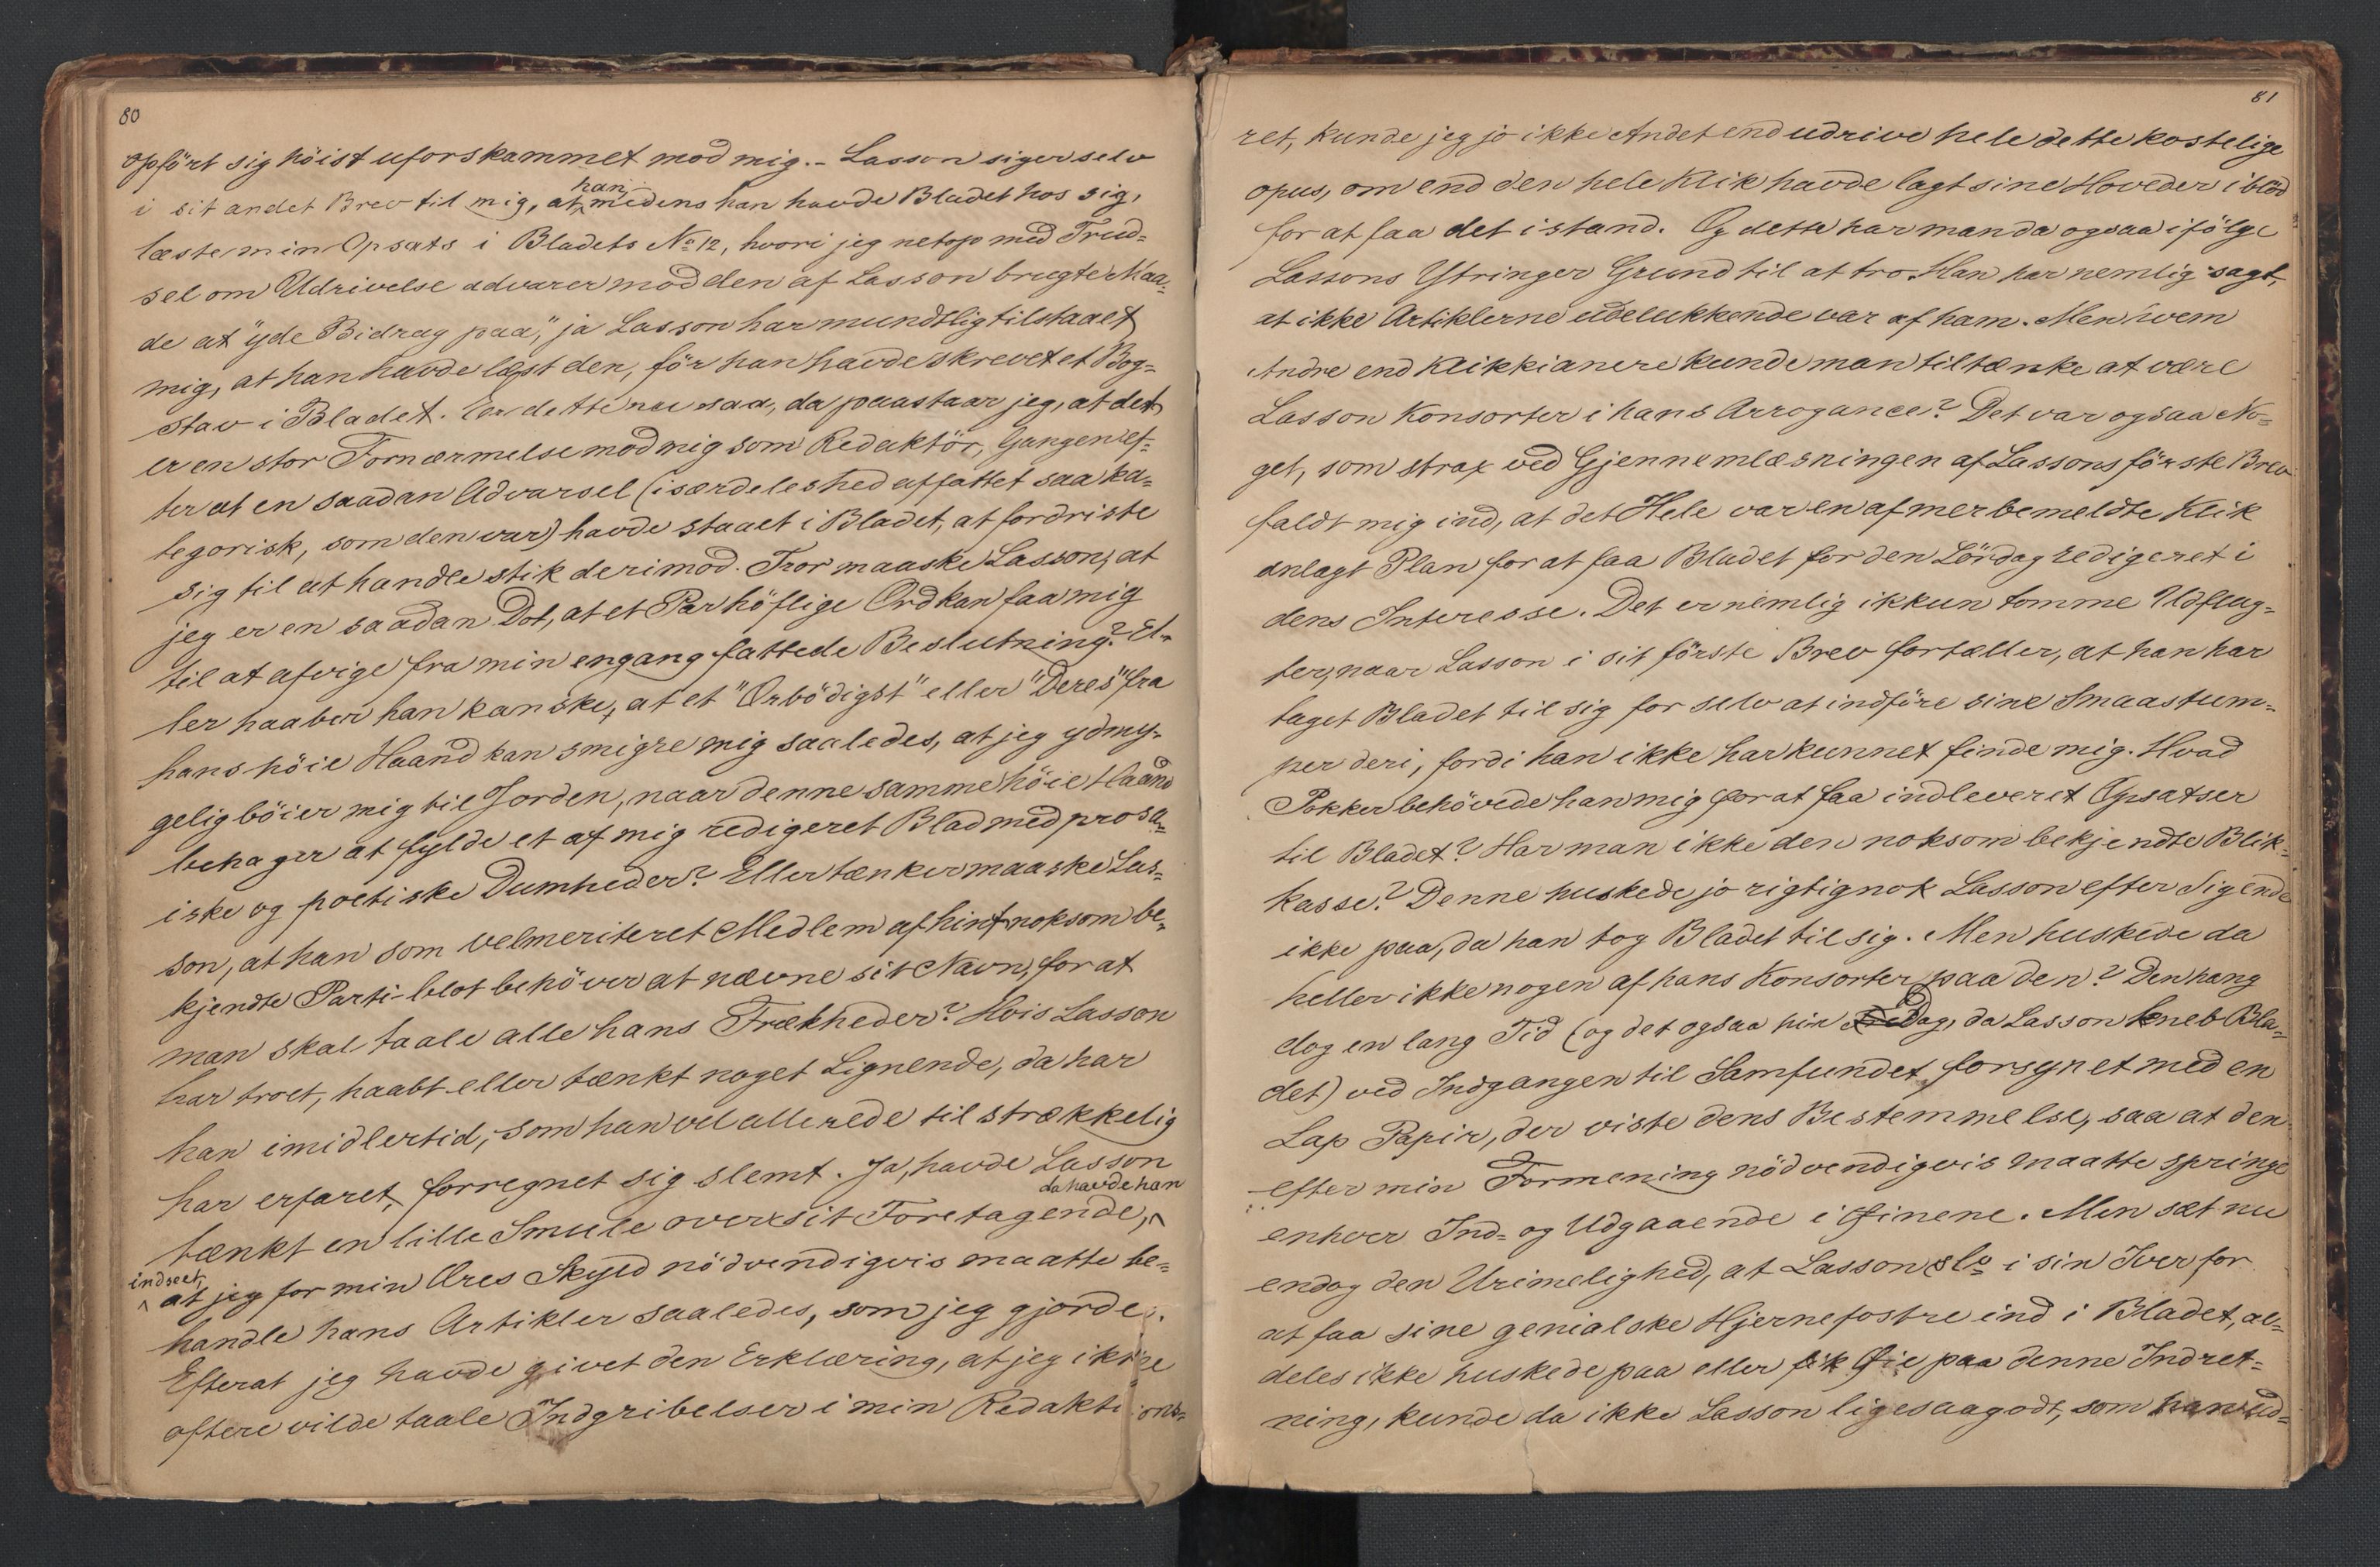 80
opført sig høist uforskammet mod mig. - Lasson siger selv
i sit andet Brev til mig, at han medens han havde Bladet hos sig,
læste min Opsats i Bladets No 12, hvori jeg netop med Trud-
sel om Udrivelse advarer mod den af Lasson brugte Maa-
de at "yde Bidrag paa", ja Lasson har mundtlig tilstaaet
mig, at han havde læst den, før han havde skrevet et Bog-
stav i Bladet. Er dette nu saa, da paastaar jeg, at det
er en stor Fornærmelse mod mig som Redaktør, Gangen ef-
ter at en saadan Advarsel (isærdeleshed affattet saa ka-
tegorisk, som den var) havde staaet i Bladet, at fordriste
sig til at handle stik derimod. Tror maaske Lasson, at
jeg er en saadan Dot, at et Par høflige Ord kan faa mig
til at afvige fra min engang fattede Beslutning? El-
ler haaber han kanske, at et "Ærbødigst" eller "Deres" fra
hans høie Haand kan smigre mig saaledes, at jeg ydmy-
gelig bøier mig til Jorden, naar denne samme høie Haand
behager at fylde et af mig redigeret Blad med prosa-
iske og poetiske Dumheder? Eller tænker maaske Las-
son, at han som velmeriteret Medlem af hint noksom be-
kjendte Parti blot behøver at nævne sit Navn, for at
man skal taale alle hans Frækheder? Hvis Lasson
har troet, haabt eller tænkt noget Lignende, da har
han imidlertid, som han vel allerede tilstrækkelig
har erfaret, forregnet sig slemt. Ja, havde Lasson
tænkt en lille Smule over sit Foretagende, da havde han
indseet, at jeg for min Æres Skyld nødvendigvis maatte be-
handle hans Artikler saaledes, som jeg gjorde.
Efterat jeg havde givet den Erklæring, at jeg ikke
oftere vilde taale Indgribelser i min Redaktions-
81
ret, kunde jeg jo ikke Andet end udrive hele dette kostelige
opus, om end den hele Klik havde lagt sine Hoveder i blød
for at faa det istand. Og dette har man da ogsaa ifølge
Lassons Ytringer Grund til at tro. Han har nemlig sagt,
at ikke Artiklerne udelukkende var af ham. Men hvem
Andre end Klikkianere kunde man tiltænke at være
Lasson Konsorter i hans Arrogance? Det var ogsaa No-
get, som strax ved Gjennemlæsningen af Lassons første Brev
faldt mig ind, at det Hele var en af merbemeldte Klik
anlagt Plan for at faa Bladet for den Lørdag redigeret i
dens Interesse. Det er nemlig ikkun tomme Udflug-
ter, naar Lasson i sit første Brev fortæller, at han har
taget Bladet til sig for selv at indføre sine Smaastum-
per deri, fordi han ikke har kunnet finde mig. Hvad
Pokker behøvede han mig for at faa indleveret Opsatser
til Bladet? Har man ikke den noksom bekjendte Blik-
kasse? Denne huskede jo rigtignok Lasson efter Sigende
ikke paa, da han tog Bladet til sig. Men huskede da
heller ikke nogen af hans Konsorter paa den? Den hang
dog en lang Tid (og det ogsaa hin Dag, da Lasson kneb Bla-
det) ved Indgangen til Samfundet forsynet med en
Lap Papir, der viste dens Bestemmelse, saa at den
efter min Formening nødvendigvis maatte springe
enhver Ind- og Udgaaende i Øinene. Men sæt nu
endog den Urimelighed, at Lasson & Co i sin Iver for
at faa sine genialske Hjernefostre ind i Bladet, al-
deles ikke huskede paa eller fik Øie paa denne Indret-
ning, kunde da ikke Lasson ligesaagodt, som han ud-